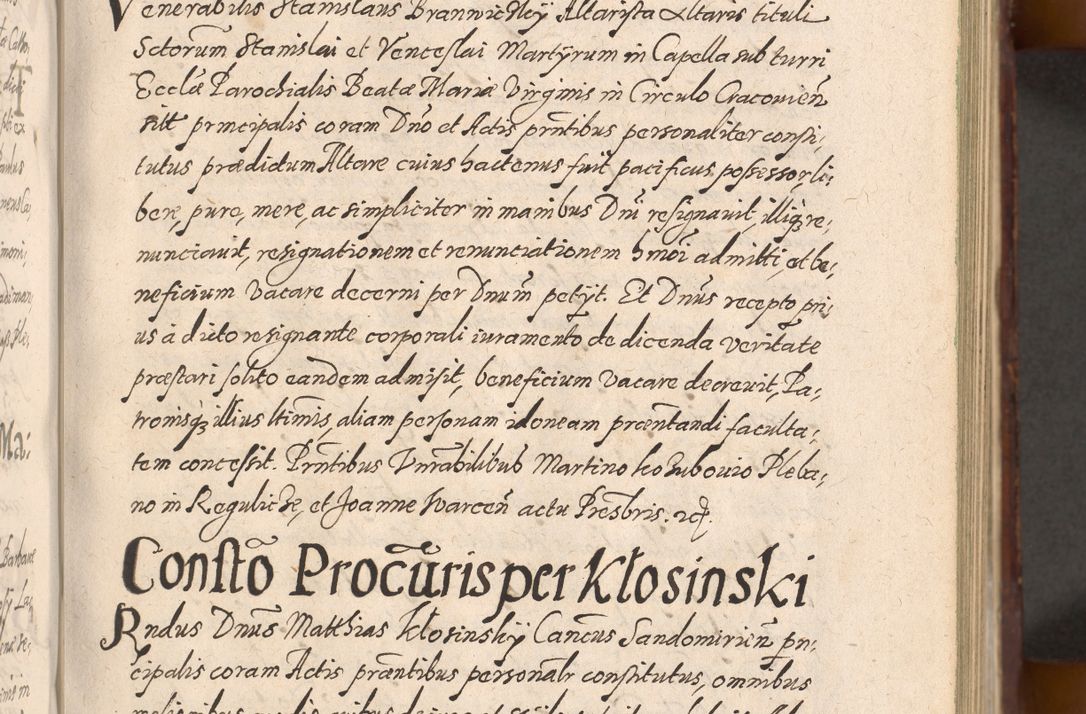 Venerabilis Stanislaus Branwiczkÿ Altarista Altaris tituli
Sctorum Stanislai et Venceslai Martÿrum in Capella sub turri
Ecclæ Parochialis Beatæ Mariæ Virginis in Circulo Cracovien̄
sitt principalis coram Dno et Actis pr̄ntibus personaliter consti,
tutus prædictum Altare cuius hactenus fuit pacificus possessor, li,
bere, pure, mere, ac simpliciter in manibus Dni resignavit, illiq̄ re,
nunciavit, resignationem et renunciationem hmōi admitti, et be,
neficium vacare decerni per Dnum petÿt. Et Dnus recepto pri,
us à dicto resignante corporali iuramento de dicenda veritate
præstari solito eandem admisit, beneficium vacare decrevit, Pa,
tronisq̄ illius ltimis, aliam personam idoneam præntandi faculta,
tem concessit. Prntibus Vnrabilibus Martino Kozubowio Pleba,
no in Regulicze, et Joanne Warcen̄ actu Presbris. etc.
Consto Procuris per Kłosinski
Rndus Dnus Matthias Kłosinskÿ Cancus Sandomirien̄ pn,
cipalis coram Actis præntibus personalr constitutus, omnibus